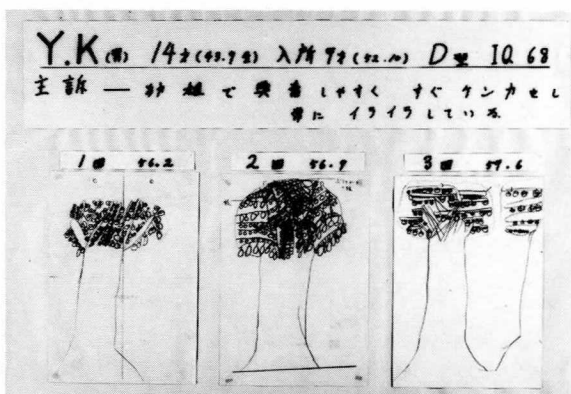 Y.K(男) 14才(43.9生) 入所9才(52.10) D型 IQ 68
主訴 — 幼稚で興奮しやすく すぐケンカをし
常に イライラしている
1回 56.2
2回 56.9
3回 57.6